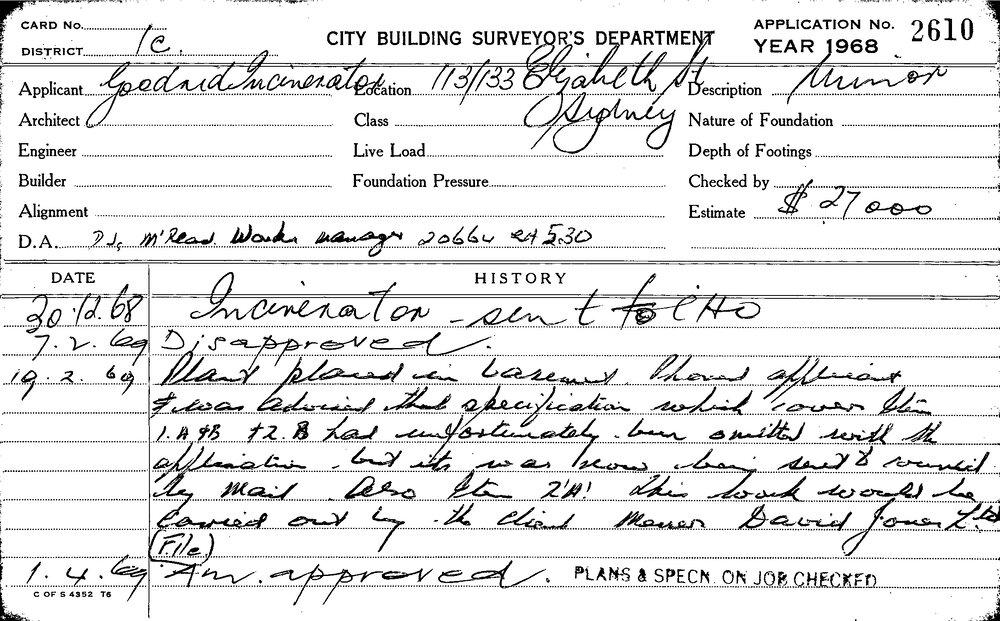 CARD No.
DISTRICT 1c.
CITY BUILDING SURVEYOR'S DEPARTMENT
APPLICATION No. 2610
YEAR 1968
Applicant Goodrid Incinerator Location 113/133 Elizabeth St Sydney Description Minor
Architect Class Nature of Foundation
Engineer Live Load Depth of Footings
Builder Foundation Pressure Checked by
Alignment Estimate $ 27000
D.A. DJs M'Read Works manager 20664 530
DATE HISTORY
30.12.68 Incinerator - sent to CHO
7.2.69 Disapproved.
19.2.69 Plant placed in basement. Phoned applicant
& was advised that specification which cover Item
1.A &B & 2.B had unfortunately been omitted with the
application but its was now being sent to council
by mail. Also Item 2'A'. This work would be
carried out by the client Messrs David Jones Ltd
(File)
1.4.69 Am. approved. PLANS & SPECN. ON JOB CHECKED
C OF S 4352 T6